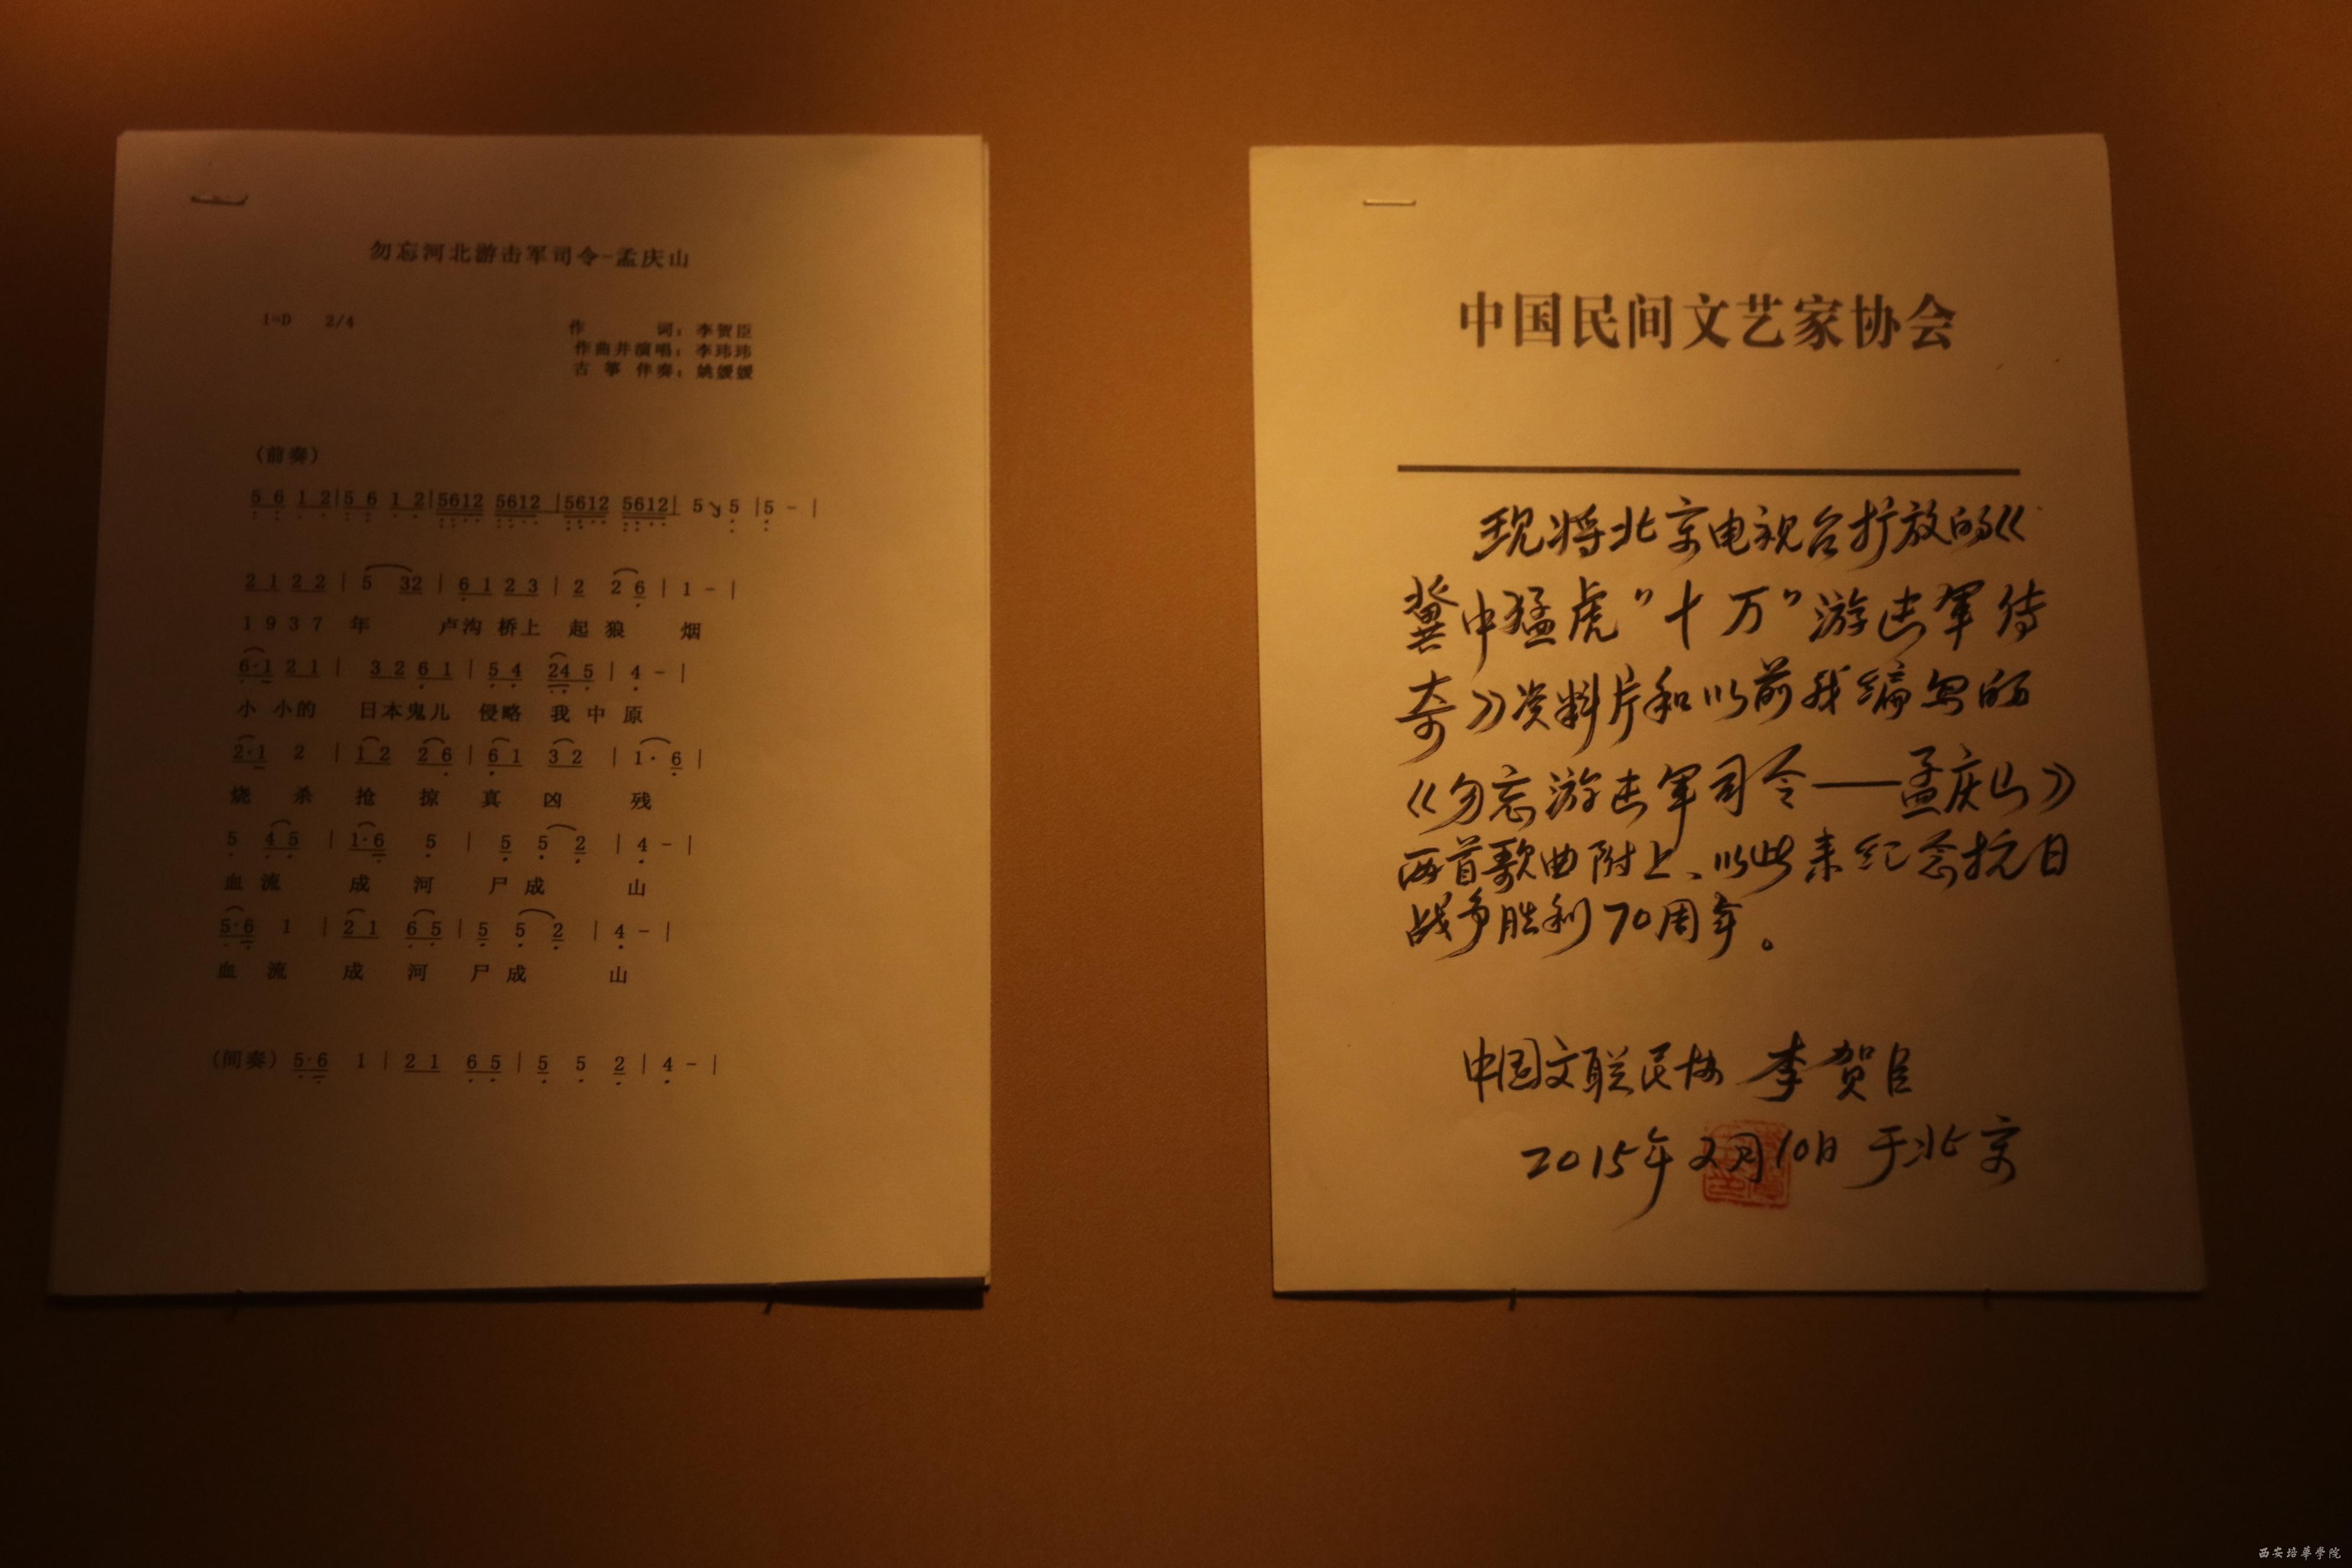 勿忘河北游击军司令-孟庆山
1=D 2/4
作 词：李贺臣
作曲并演唱：李玮玮
古 筝 伴奏：姚媛媛
（前奏）
5 6 1 2|5 6 1 2|5612 5612 |5612 5612| 5 5 |5 - |
2 1 2 2 | 5 32 | 6 1 2 3 | 2 2 6 | 1 - |
1 9 3 7 年 卢沟 桥上 起 狼 烟
6·1 2 1 | 3 2 6 1 | 5 4 24 5 | 4 - |
小 小的 日本鬼儿 侵略 我 中 原
2·1 2 | 1 2 2 6 | 6 1 3 2 | 1· 6 |
烧 杀 抢 掠 真 凶 残
5 4 5 | 1·6 5 | 5 5 2 | 4 - |
血 流 成 河 尸 成 山
5·6 1 | 2 1 6 5 | 5 5 2 | 4 - |
血 流 成 河 尸 成 山
（间奏）5·6 1 | 2 1 6 5 | 5 5 2 | 4 - |
中国民间文艺家协会
现将北京电视台扩放的《
冀中猛虎"十万"游击军传
奇》资料片和以前我编写的
《勿忘游击军司令——孟庆山》
两首歌曲附上、以此来纪念抗日
战争胜利70周年。
中国文联民协 李贺臣
2015年2月10日 于北京
西安培華學院